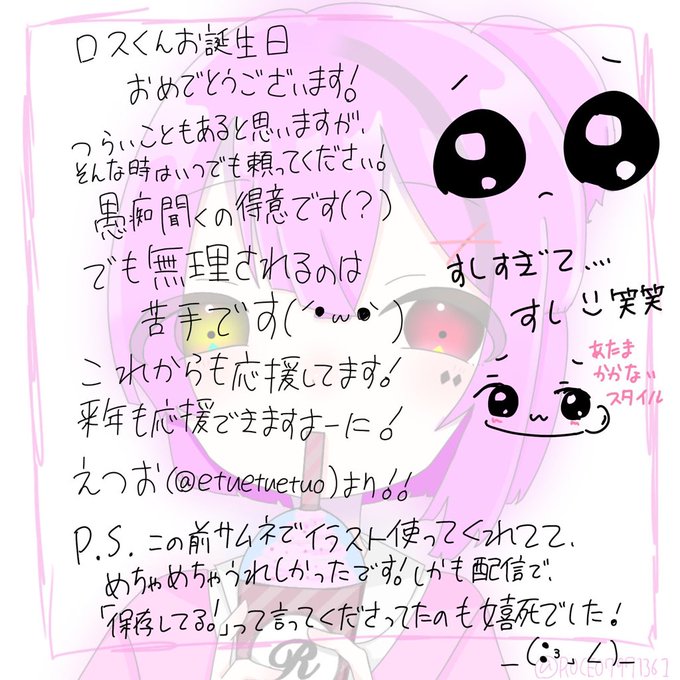 ロスくんお誕生日
おめでとうございます!
つらいこともあると思いますが、
そんな時はいつでも頼ってください!
愚痴聞くの得意です(?)
でも無理されるのは
苦手です(´•ω•`)
これからも応援してます!
来年も応援できますよーに!
えつお(@etuetuetuo)より!!
P.S.この前サムネでイラスト使ってくれてて、
めちゃめちゃうれしかったです!しかも配信で、
「保存してる!」って言ってくださってたのも嬉死でした!
_(:3」∠)_
すしすぎて…
すし!!笑笑
あたま
かかない
スタイル
R